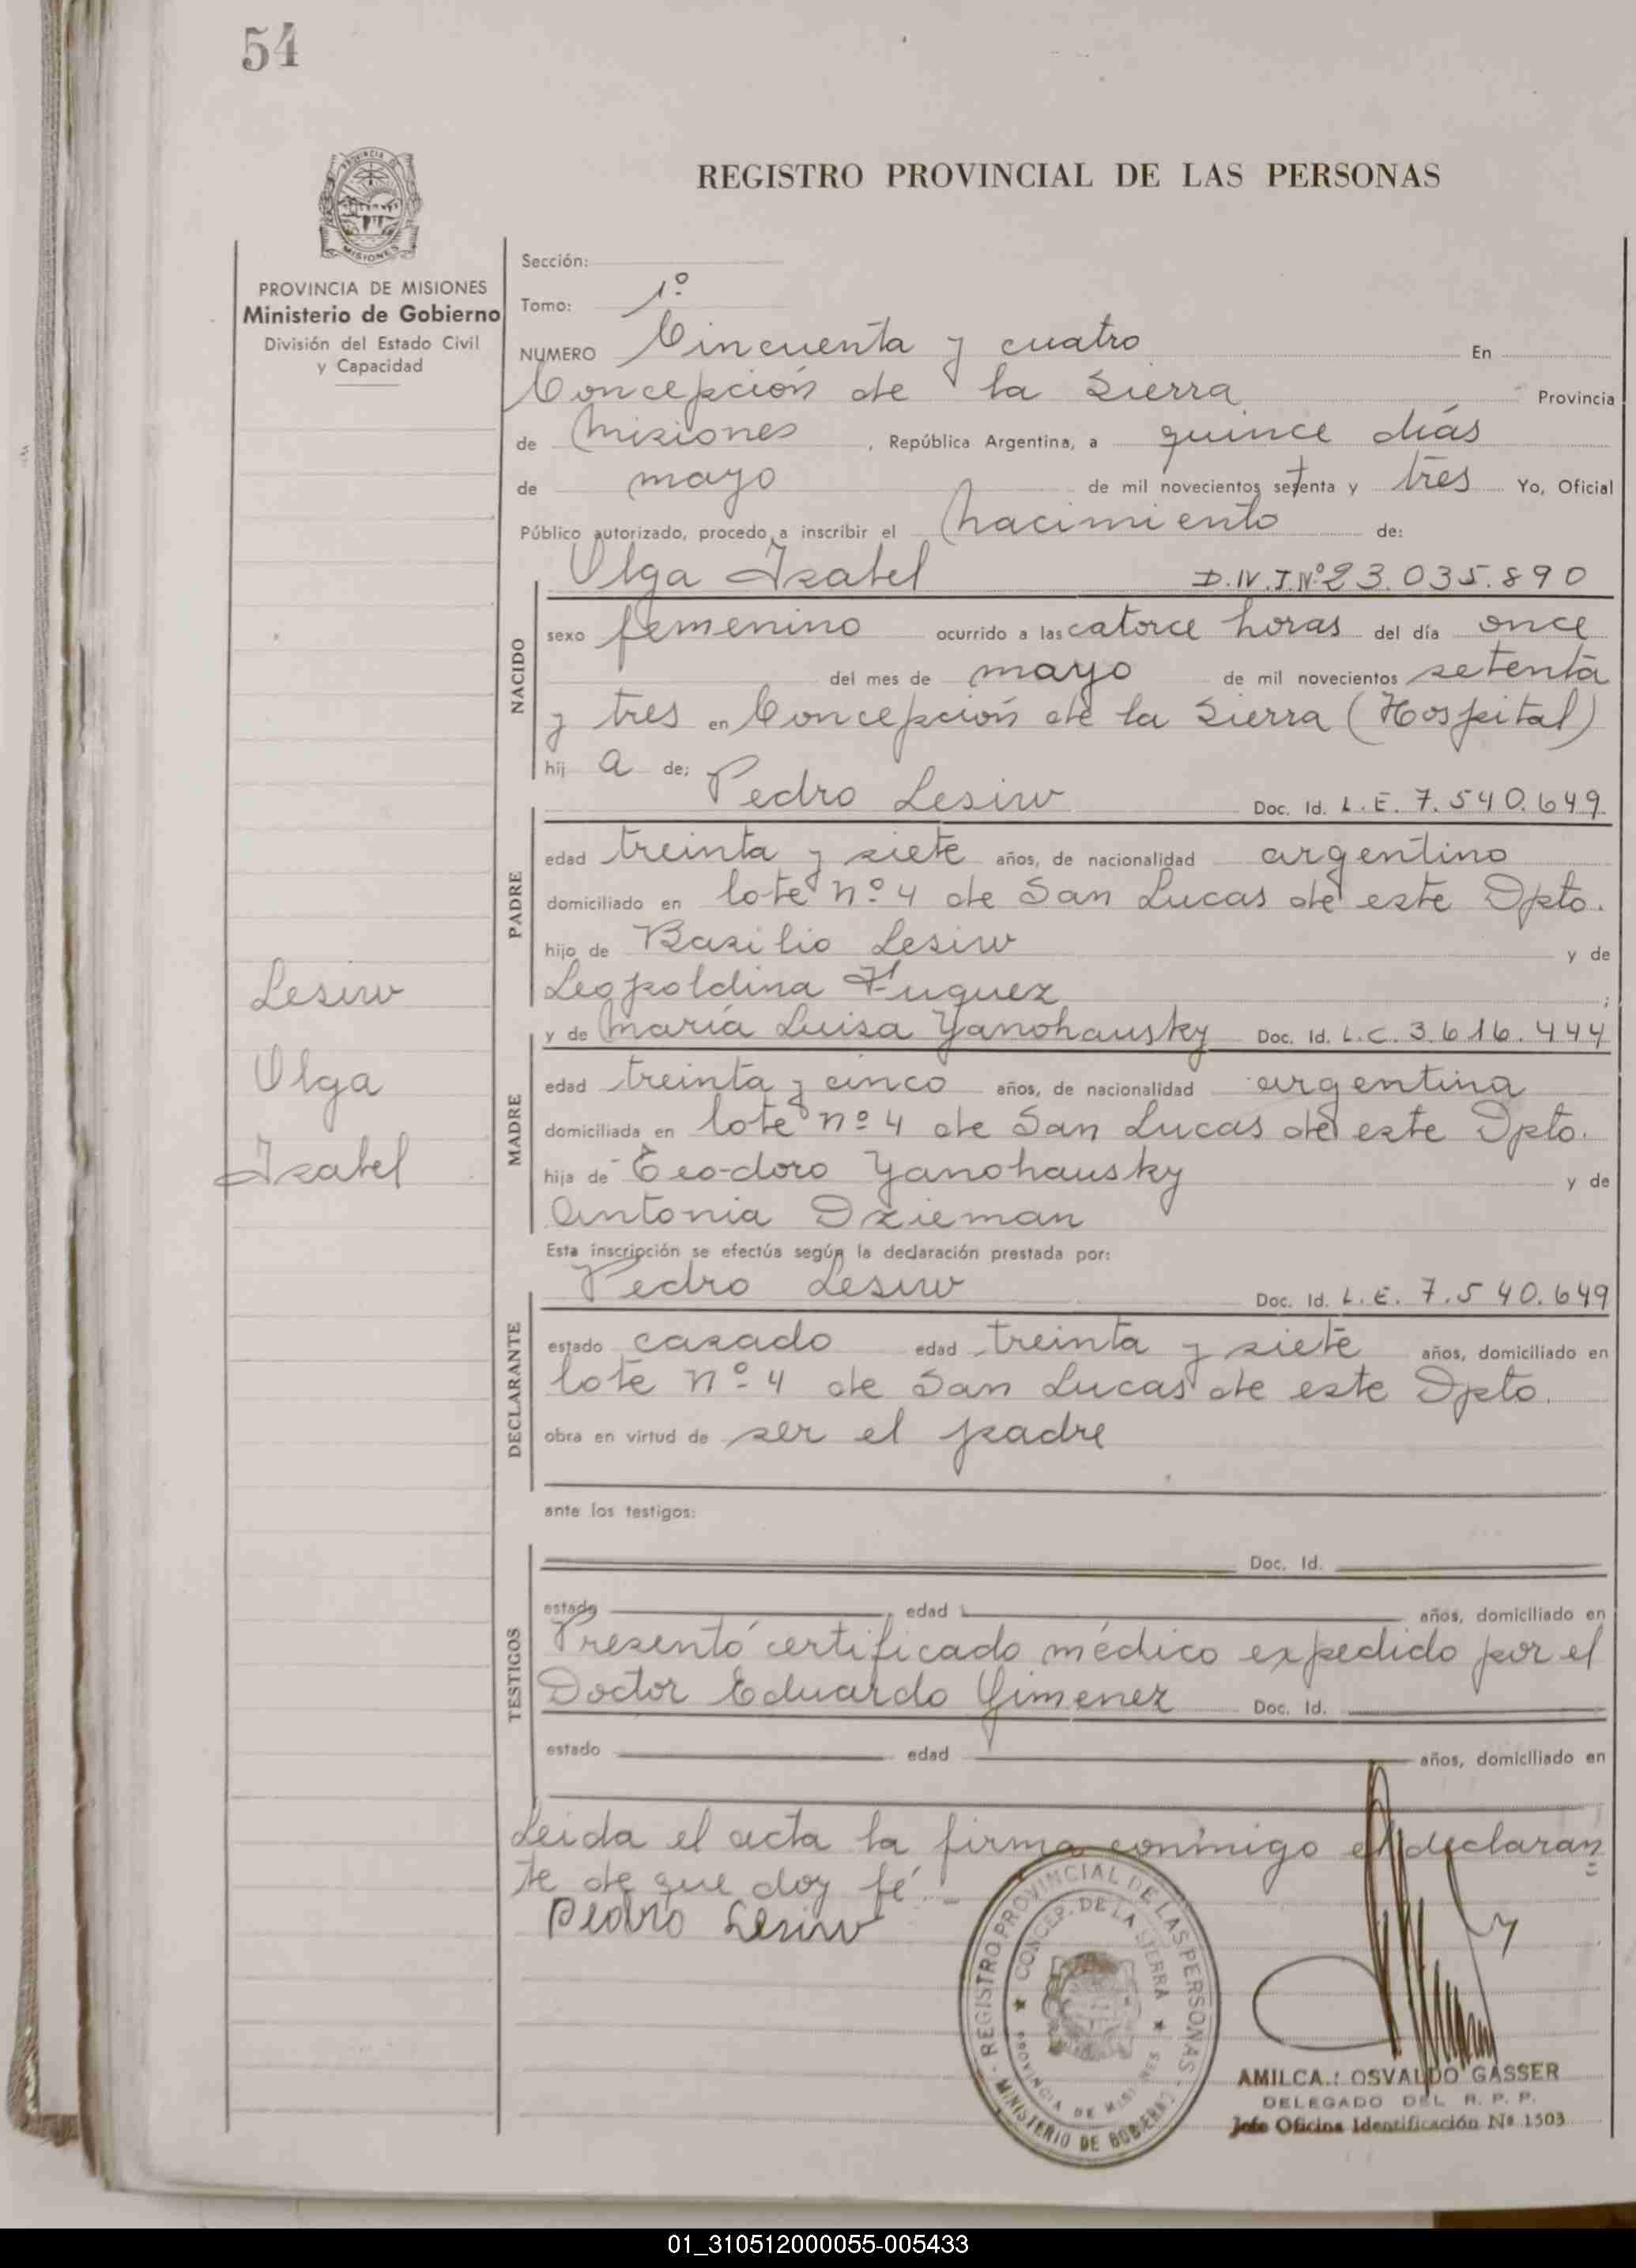 54
REGISTRO PROVINCIAL DE LAS PERSONAS
PROVINCIA DE MISIONES
PROVINCIA DE MISIONES
Ministerio de Gobierno
División del Estado Civil
y Capacidad
Sección:
Tomo: 1º
NUMERO Cincuenta y cuatro En
Concepción de la Sierra Provincia
de Misiones, República Argentina, a quince días
de mayo de mil novecientos setenta y tres Yo, Oficial
Público autorizado, procedo a inscribir el Nacimiento de:
Olga Isabel D.N.I.Nº23.035.890
NACIDO
sexo femenino ocurrido a las catorce horas del día once
del mes de mayo de mil novecientos setenta
y tres en Concepción de la Sierra (Hospital)
hij a de: Pedro Lesiw Doc. Id. L.E. 7.540.649
PADRE
edad treinta y siete años, de nacionalidad argentino
domiciliado en lote nº 4 de San Lucas de este Dpto.
hijo de Basilio Lesiw y de
Leopoldina Fuguez ;
Lesiw
Olga
Isabel
y de María Luisa Yanohausky Doc. Id. L.C. 3.616.444
MADRE
edad treinta y cinco años, de nacionalidad argentina
domiciliada en lote nº 4 de San Lucas de este Dpto.
hija de Teodoro Yanohausky y de
Antonia Dzieman
Esta inscripción se efectúa según la declaración prestada por:
Pedro Lesiw Doc. Id. L.E. 7.540.649
DECLARANTE
estado casado edad treinta y siete años, domiciliado en
lote nº 4 de San Lucas de este Dpto.
obra en virtud de ser el padre
ante los testigos:
Doc. Id.
TESTIGOS
estado edad años, domiciliado en
Presentó certificado médico expedido por el
Doctor Eduardo Gimenez Doc. Id.
estado edad años, domiciliado en
Leida el acta la firma conmigo el declaran=
te de que doy fé.-
Pedro Lesiw
REGISTRO PROVINCIAL DE LAS PERSONAS - MINISTERIO DE GOBIERNO
CONCEP. DE LA SIERRA ★ PROVINCIA DE MISIONES ★
AMILCA.: OSVALDO GASSER
DELEGADO DEL R. P. P.
Jefe Oficina Identificación Nº 1503
01_310512000055-005433